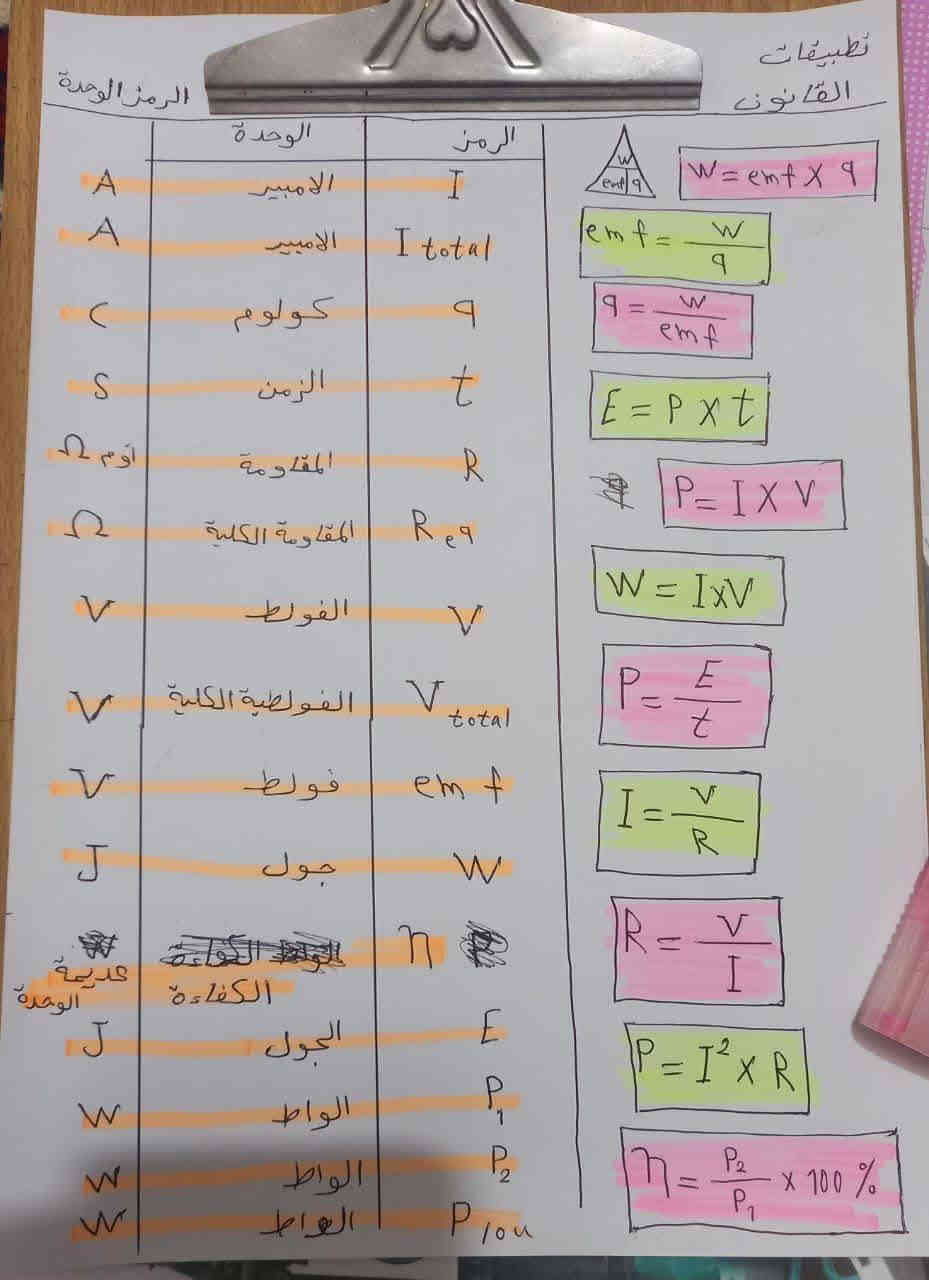 تطبيقات
القانون
الرمز الوحدة
الرمز الوحدة
I الامبير A
I total الامبير A
q كولوم C
t الزمن S
R المقاومة اوم Ω
R eq المقاومة الكلية Ω
V الفولط V
V total الفولطية الكلية V
emf فولط V
W جول J
η الكفاءة عديمة
الوحدة
E الجول J
P₁ الواط W
P₂ الواط W
P الواط W
W
emf q
W = emf X q
emf = W / q
q = W / emf
E = P X t
P = I X V
W = IxV
P = E / t
I = V / R
R = V / I
P = I² x R
η = P₂ / P₁ x 100 %